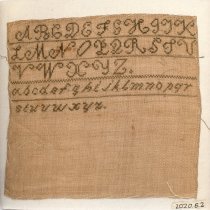 ABCDEFGHIJK
LMNOPQRSTU
VWXYZ.
abcdefghiklmnopqr
stuvwxyz.
2020.62